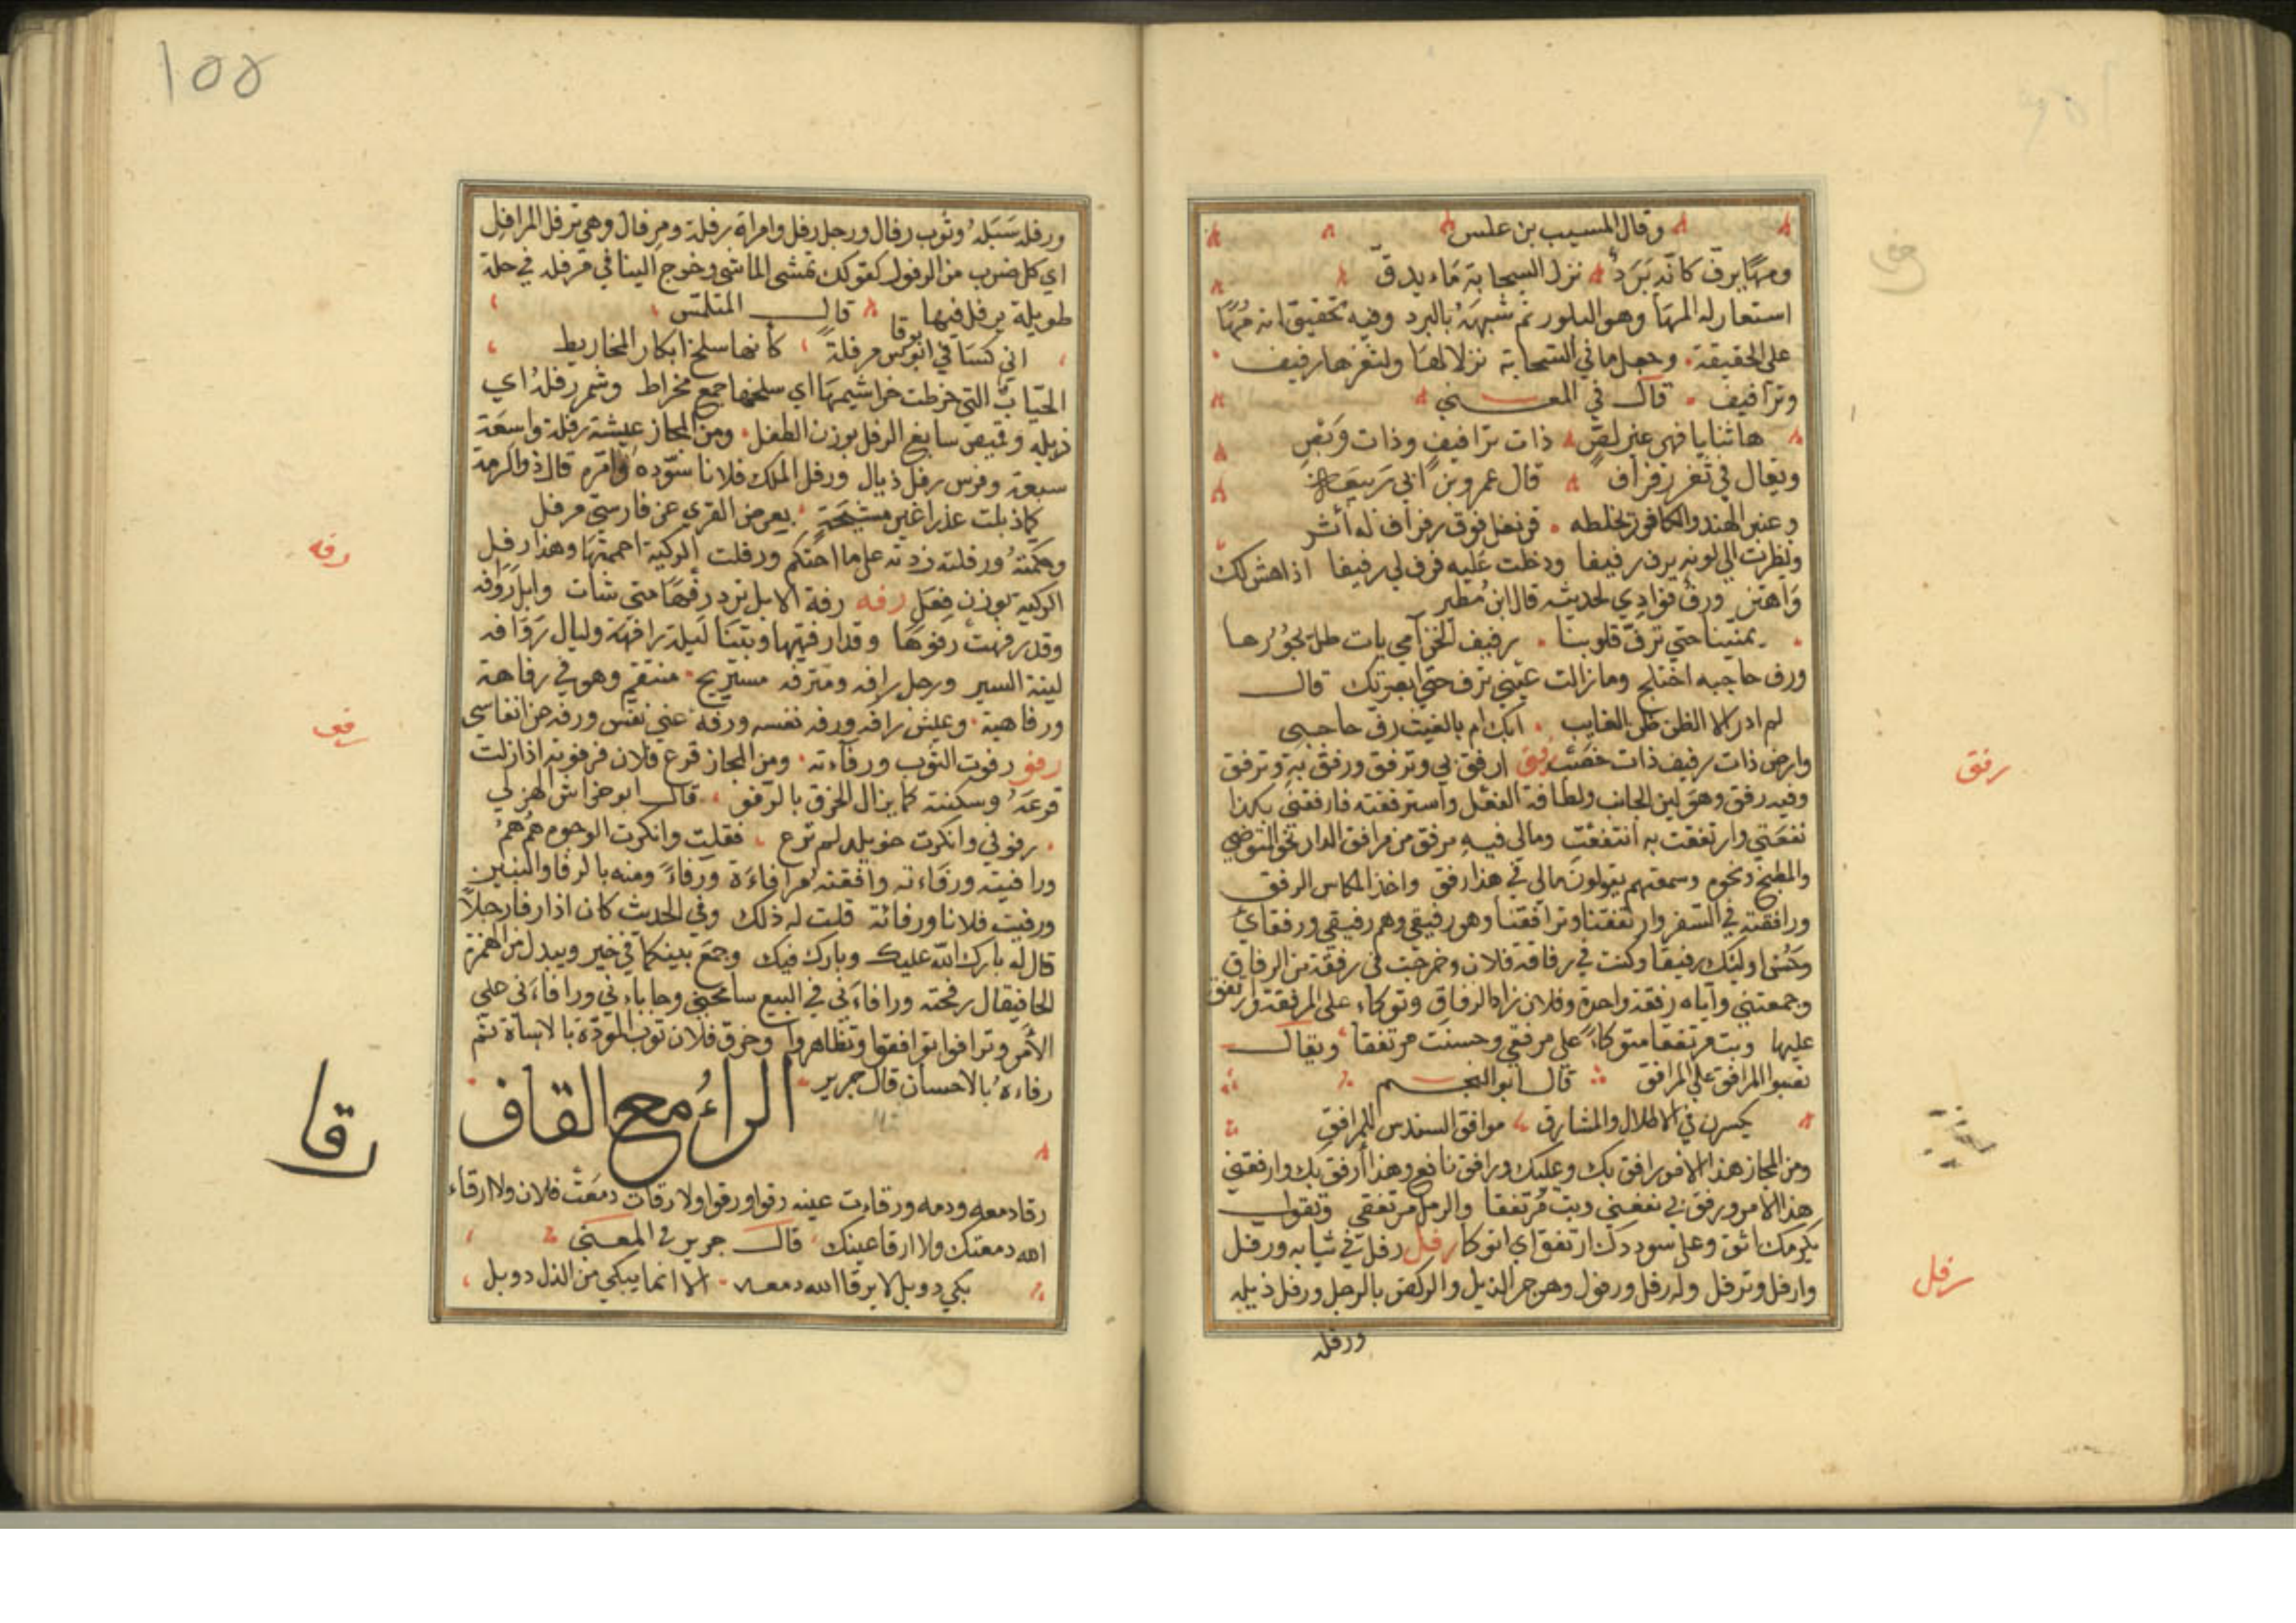 وقال المسيب بن علس
ومها يرف كانه برد نزل السحابة ماء يدق
استعار له المها وهو البلور ثم شبهه بالبرد وفيه تحقيق انه مها
على الحقيقة وجعل ما في السحابة نزلا لها ولثغرها رفيف
وترافيف قال في المعنى
ها ثنايا فهي عنبر لص ذات ترافيف وذات وبص
ويقال في ثغر رفراف قال عمرو بن ابي ربيعة
وعنبر الهند والكافور تخلطه قرنفل فوق رفراف له أشر
ونظرت الي لونه يرف رفيفا ودخلت عليه فرف لي رفيفا اذا هش لك
واهتز ورف فوادي لحديثه قال ابن مطير
يمنيننا حتي ترف قلوبنا رفيف الخزامي بات طل يجودها
ورف حاجبه اختلج وما زالت عيني ترف حتي ابصرتك قال
لم ادر الا الظن ظن الغايب ابك ام بالغيث رف حاجبي
وارض ذات رفيف ذات خصب رفق ارفق بي وترفق ورفق به وترفق
وفيه رفق وهو لين الجانب ولطافة الفعل واسترفقته فارفقني بكذا
نفعني وارتفقت به انتفعت ومالي فيه مرفق من مرافق الدار نحو المتوضي
والمطبخ ونحوه وسمعتهم يقولون مالي في هذا رفق واخذ المكاس الرفق
ورافقته في السفر وارتفقنا وترافقنا وهو رفيقي وهم رفيقي ورفقاي
وحسن اوليك رفيقا وكنت في رفاقة فلان وخرجت في رفقة من الرفاق
وجمعتني واياه رفقة واحدة وفلان زاد الرفاق وتوكاء على المرفقة وارتفق
عليها وبت مرتفقا متوكاء على مرفقي وحسنت مرتفقا ويقال
نصبوا المرافق علي المرافق قال ابو النجم
يكسرن في الاطلال والمشارق موافق السندس للمرافق
ومن المجاز هذا الامر رافق بك وعليك ورافق نافع وهذا أرفق بك وارفقني
هذا الامر ورفق بي نفعني وبت مرتفقا والرمل مرتفقي وتقول
بكرمك اثق وعلى سوددك ارتفق اي اتوكا رفل رفل في ثيابه ورفل
وارفل وترفل وله رفل ورفول وهو جر الذيل والركض بالرجل ورفل ذيله
ورفله
رفق
رفل
١٥٥
ورفله سبله وثوب رفال ورجل رفل وامراة رفلة ومرفال وهي ترفل المرافل
اي كل ضرب من الرفول كقولك تمشى المماشي وخرج الينا في مرفلة في حلة
طويلة يرفل فيها قال المتلمس
اني كساني ابوقابوس مرفلة كأنها سلخ ابكار المخاريط
الحيات التي خرطت خراشيمها اي سلختها جمع مخراط وشمر رفله اي
ذيله وقميص سابغ الرفل بوزن الطفل ومن المجاز عيشة رفلة واسعة
سبعة وفرس رفل ذيال ورفل الملك فلانا سوده وامره قال ذوالرمة
كاذبلت عذراغير مشيحة يعرض القري عن فارسي مرفل
وحكمته ورفلته زدته على ما احتكم ورفلت الركية اجممتها وهذا رفل
الركية بوزن فعل رفه رفه الابل ترد رفها متي شات وابل روافه
وقد رفهت رفوها وقد ارفهتها وبتنا ليلة رافهة وليال روافه
لينة السير ورجل رافه ومترفه مستريح متنعم وهو في رفاهة
ورفاهية وعيش رافه ورفه نفسه ورفه عني نفس ورفه من انفاسي
رفو رفوت الثوب ورفأته ومن المجاز فزع فلان فرفوته اذا زلت
فزعه وسكنته كما يزال الخرق بالرفو قال ابو خراش الهزلي
رفوني وانكرت خويلد لم ترع فقلت وانكرت الوجوه هم هم
ورافيته ورفاءته وافقته مرافاءة ورفاء ومنه بالرفا والبنين
ورفيت فلانا ورفائة قلت له ذلك وفي الحديث كان اذا رفا رجلا
قال له بارك الله عليك وبارك فيك وجمع بينكما في خير ويبدل من الهمزة
الحا فيقال رفحته ورافاءني في البيع سامحني وحاباءني ورافاءني على
الأمر وترافوا توافقوا وتظاهروا وخرق فلان ثوب المودة بالاساة ثم
رفاءه بالاحسان قال جرير
الراء مع القاف
رقا دمعه ودمه ورقاءت عينه رقوا ورقوا ولا رقات دمعت فلان ولا ارقاء
الله دمعتك ولا ارقا عينك قال جرير في المعنى
بكي دوبل لا يرقا الله دمعه الا انما يبكي من الذل دوبل
رفه
رفو
رقا